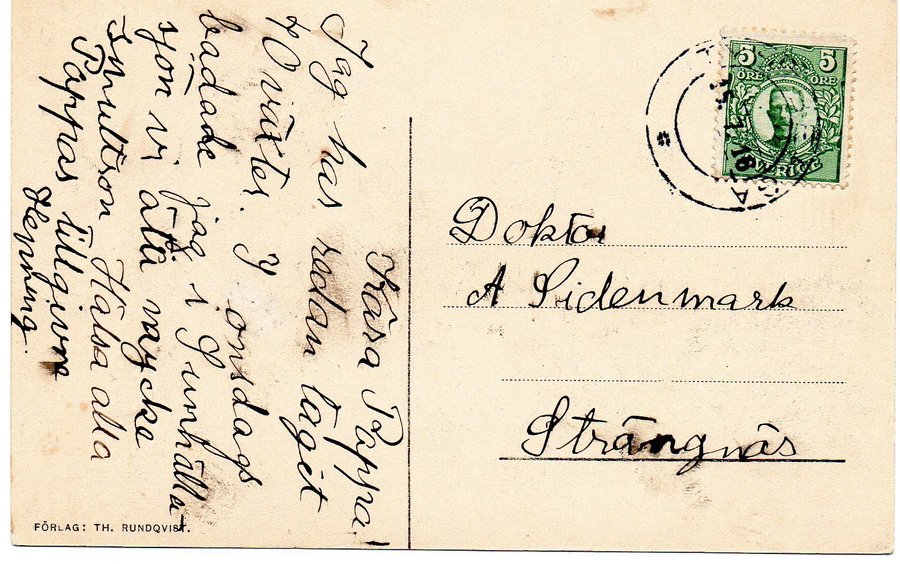 Kära Pappa!
Jag har redan tagit
40 växter. I onsdags
badade jag i Sunhälla
sjön vi ätu mycke
Smultron Hälsa alla
Pappas tillgivne
Henning.
FÖRLAG: TH. RUNDQVIST.
5 5
ÖRE ÖRE
SVERIGE
15 7 18
Doktor
A Sidenmark
Strängnäs